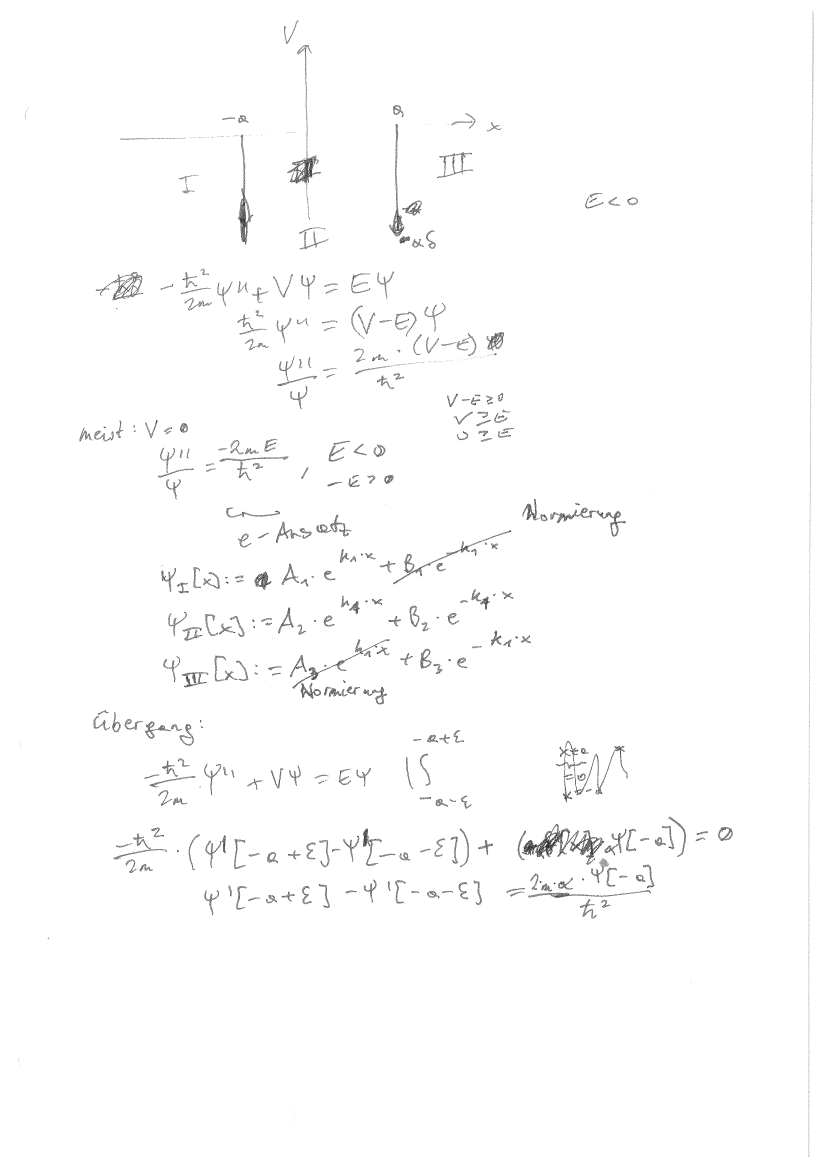 V
-a
a
→ x
I
III
E<0
II
-αδ
-ℏ²/2m ψ'' + Vψ = Eψ
ℏ²/2m ψ'' = (V-E)ψ
ψ''/ψ = 2m·(V-E)/ℏ²
V-E≥0
V≥E
0≥E
meist: V=0
ψ''/ψ = -2mE/ℏ² , E<0
-E>0
e-Ansatz
Normierung
ψ_I[x]:= A₁·e^{k₁·x} + B₁·e^{-k₁·x}
ψ_II[x]:= A₂·e^{k₁·x} + B₂·e^{-k₁·x}
ψ_III[x]:= A₃·e^{k₁·x} + B₃·e^{-k₁·x}
Normierung
Übergang:
-ℏ²/2m ψ'' + Vψ = Eψ |∫_{-a-ε}^{-a+ε}
-ℏ²/2m·(ψ'[-a+ε]-ψ'[-a-ε]) + (αψ[-a]) = 0
ψ'[-a+ε] - ψ'[-a-ε] = 2m·α·ψ[-a]/ℏ²